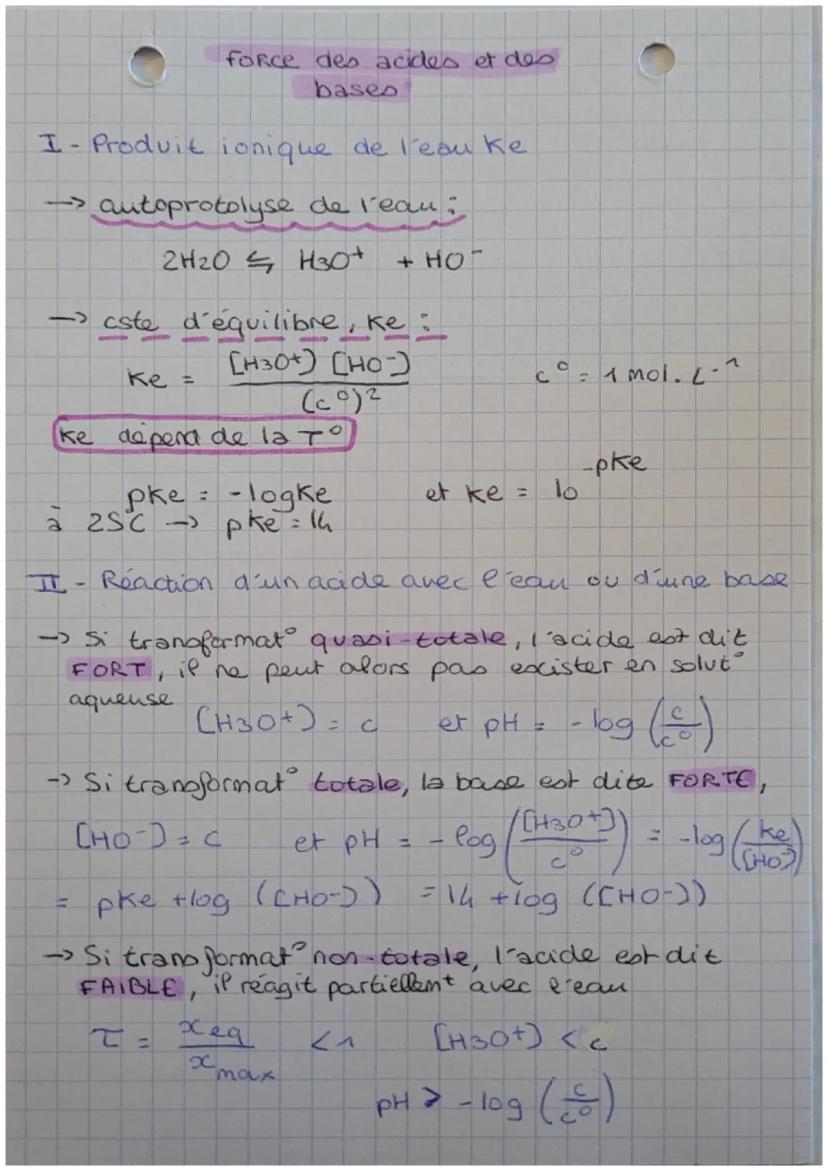 Force des acides et des
bases
I - Produit ionique de l'eau Ke
→ autoprotolyse de l'eau :
2H2O ⇆ H3O+ + HO-
→ cste d'équilibre, Ke :
Ke = [H3O+] [HO-] / (c°)² c° = 1 mol. L-1
Ke dépend de la T°
pKe = -logKe et Ke = 10^-pKe
à 25°C → pKe = 14
II - Réaction d'un acide avec l'eau ou d'une base
→ Si transformat° quasi-totale, l'acide est dit
FORT, il ne peut alors pas excister en solut°
aqueuse
[H3O+] = c et pH = -log (c/c°)
→ Si transformat° totale, la base est dite FORTE,
[HO-] = c et pH = -log ([H3O+]/c°) = -log (Ke/[HO-])
= pKe +log ([HO-]) = 14 +log ([HO-])
→ Si transformat° non-totale, l'acide est dit
FAIBLE, il réagit partiellemt avec l'eau
τ = xeq / xmax < 1 [H3O+] < c
pH > -log (c/c°)